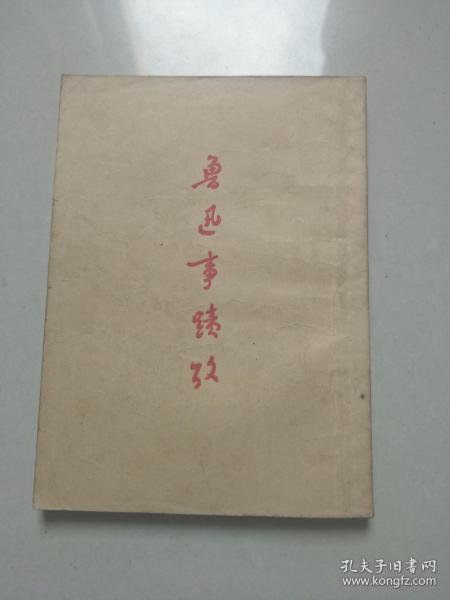 魯迅事蹟攷
孔夫子旧书网
www.kongfz.com